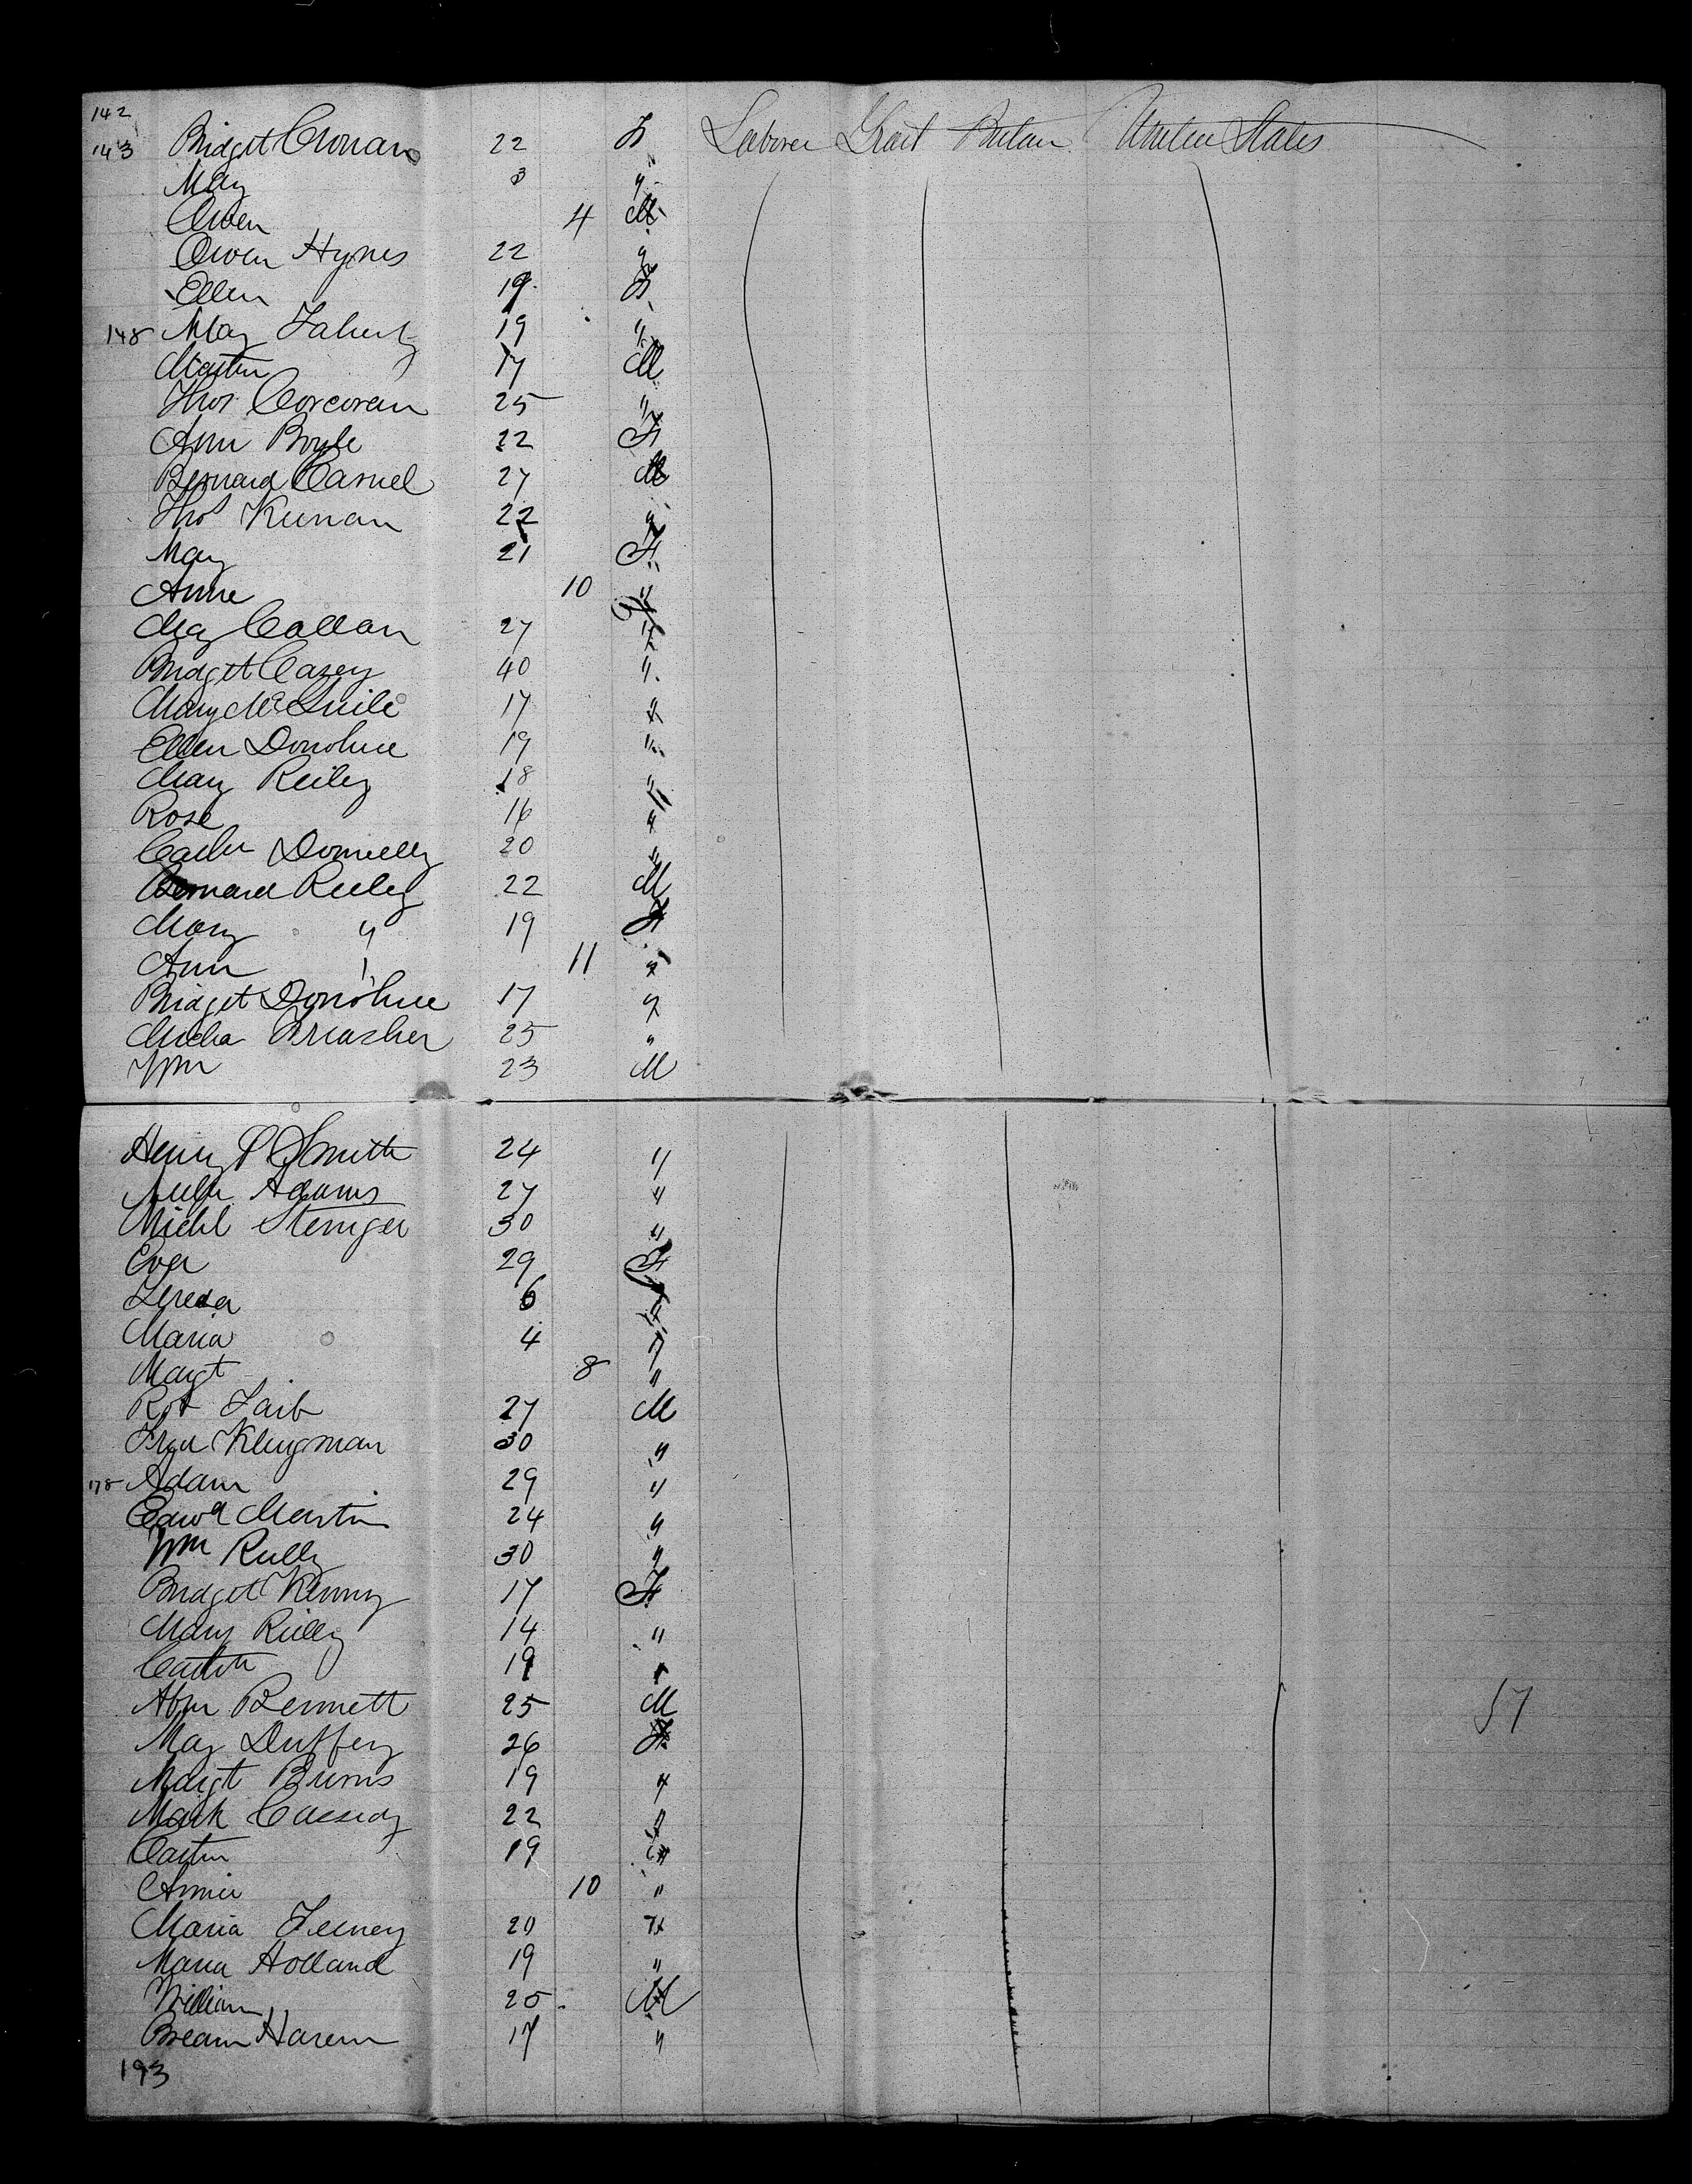 142
143 Bridget Cronan 22 F Laborer Great Britan United States
May 3 "
Owen 4 M
Owen Hynes 22 "
Ellen 19 F
148 May Faherty 19 "
Martin 17 M
Thos Corcoran 25 "
Ann Boyle 22 F
Bernard Carnel 27 M
Thos Keenan 22 "
Mary 21 F
Anne 10 "
May Callan 27 "
Bridget Casey 40 "
Mary Mc 17 "
Ellen Donohue 19 "
Mary Reiley 18 "
Rose 16 "
Cathr Donnelly 20 "
Bernard Reiley 22 M
Mary " 19 F
Ann " 11 "
Bridget Donohue 17 "
25 "
Wm 23 M
Henry P Smith 24 "
Adams 27 "
Michl 30 "
Eva 29 F
Teresa 6 "
Maria 4 "
Margt 8 "
Robt 27 M
Fred Klugman 30 "
178 Adam 29 "
Edwd Martin 24 "
Wm Reilly 30 "
Bridget Kenny 17 F
Mary Reilly 14 "
Cathr 19 "
Abm Bennett 25 M
May Duffey 26 F
Margt Burns 19 "
Mark Cassidy 22 "
Cathr 19 "
Annie 10 "
Maria Feeney 20 "
Maria Holland 19 "
William 25 M
17 "
193
57